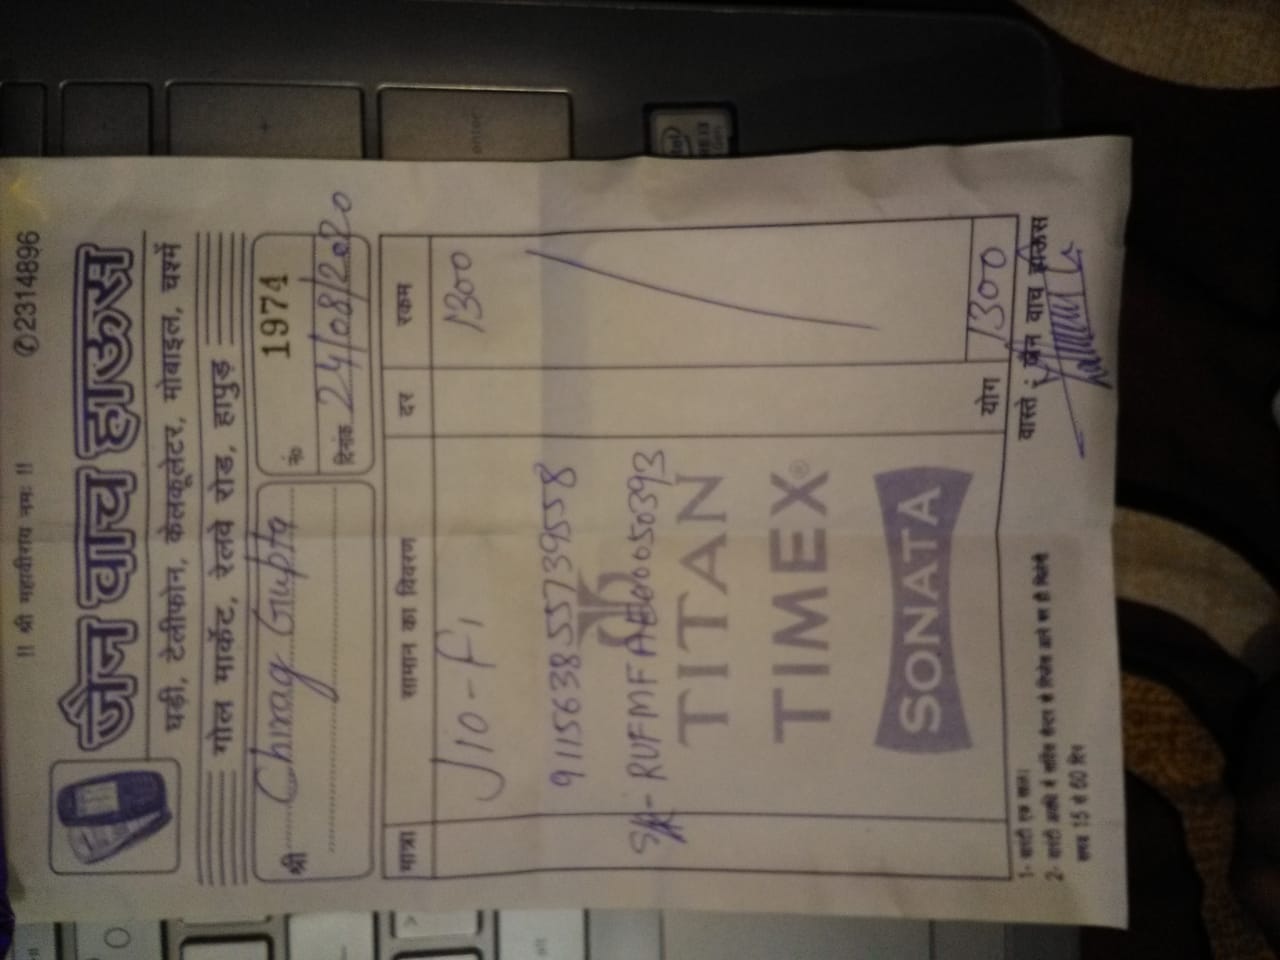 !! श्री महावीराय नमः !! ✆2314896
जैन वाच हाऊस
घड़ी, टेलीफोन, केलकूलेटर, मोबाइल, चश्में
गोल मार्केट, रेलवे रोड, हापुड़
श्री Chirag Gupta
नं० 1974
दिनांक 24/08/2020
मात्रा सामान का विवरण दर रकम
Jio-Fi 1300
911563855739558
RUFMFAE00050393
TITAN
TIMEX®
SONATA
योग 1300
वास्ते : जैन वाच हाऊस
1- वारंटी एक साल।
2- वारंटी अवधि में सर्विस सेन्टर से रिप्लेस आने पर ही मिलेगी
समय 15 से 60 दिन
enter
intel